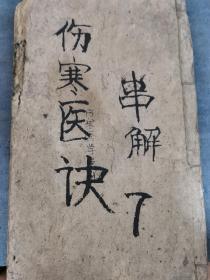 伤寒医诀
串解
7